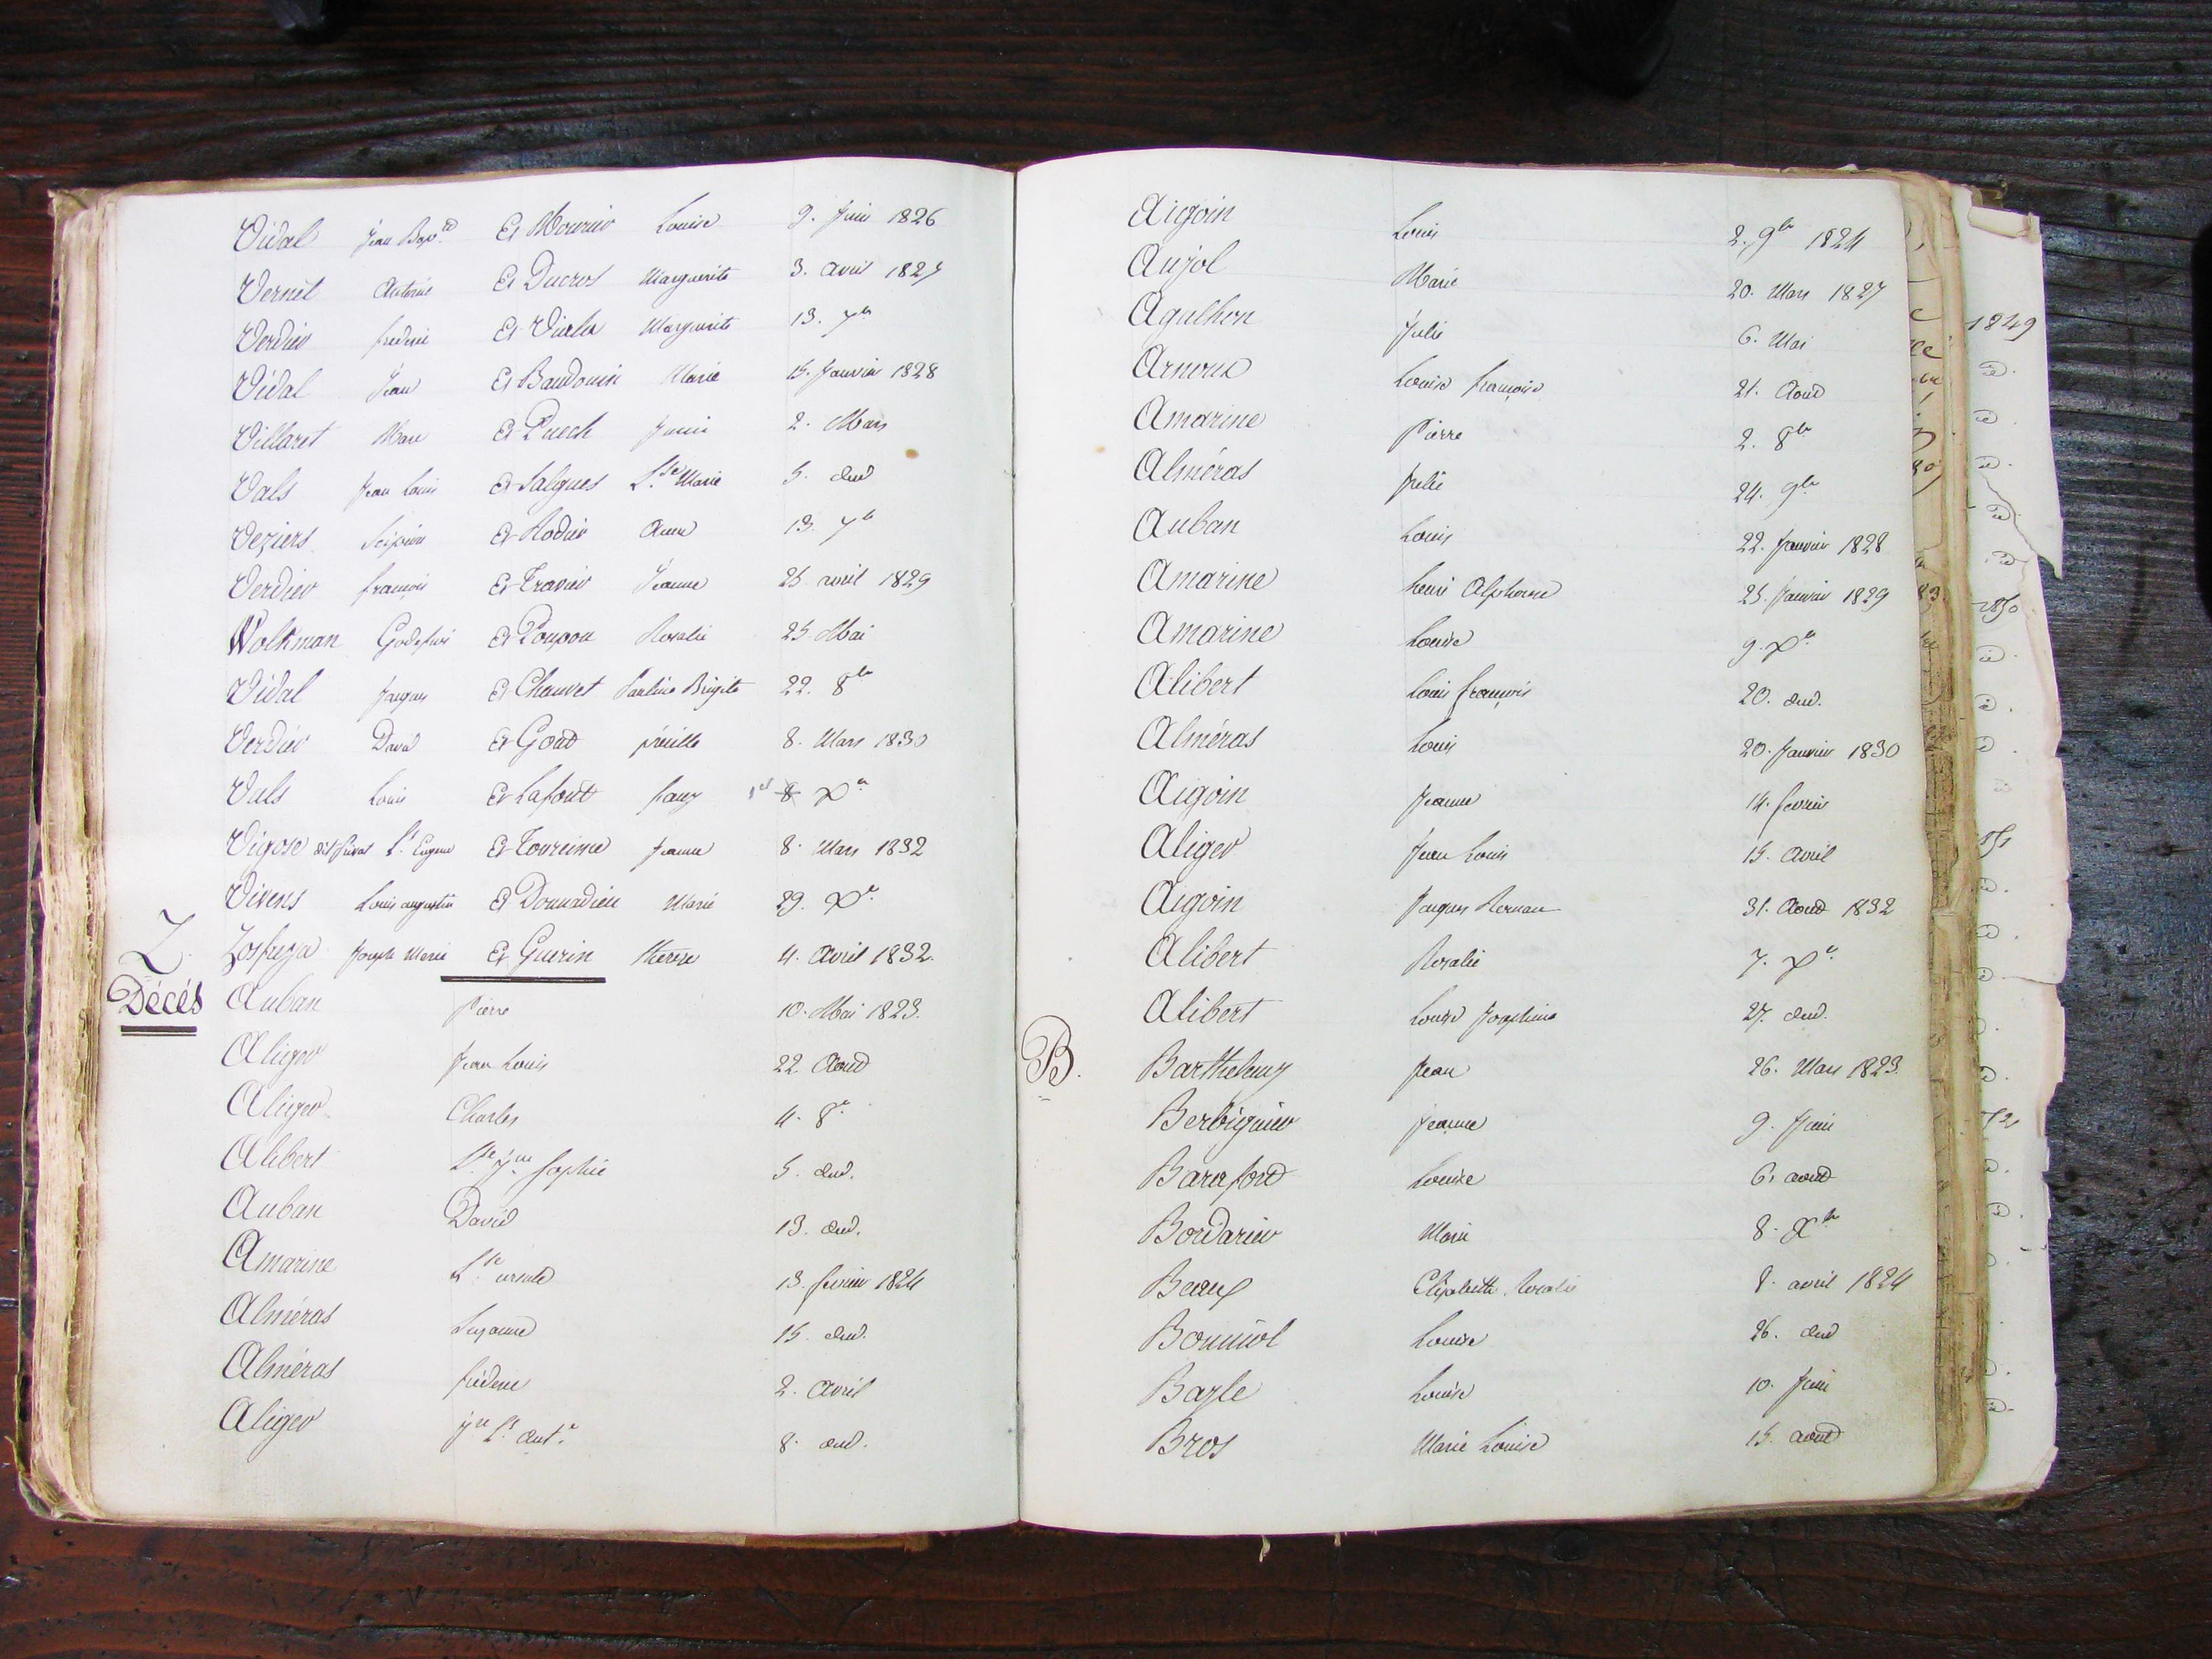 Vidal Jean Bap.te Et Mourier Louise 9. Juin 1826
Vernet Antoine Et Ducros Marguerite 3. avril 1827
Verdier frederic Et Viala Marguerite 13. 7bre
Vidal Jean Et Baudouin Marie 15. Janvier 1828
Villaret Marc Et Puech Junie 2. Mars
Vals Jean Louis Et Salgues L.se Marie 5. dud
Veziers Scipion Et Rodier Anne 13. 7b
Verdier françois Et Travier Jeanne 25 avril 1829
Wolkman Godefroi Et Poupon Rosalie 25 Mai
Vidal Jaques Et Chauvet Pauline Brigite 22. 8bre
Verdier David Et Gout 8. Mars 1830
Vals Louis Et Lafont fany 1er 8 Xre
Vigose dit L.s Eugene Et Toureime Jeanne 8. Mars 1832
Vivens Louis augustin Et Donnadieu Marie 29. Xre
Z.
Joseph Marie Et Guerin therese 4. Avril 1832.
Décés Auban Pierre 10. Mai 1823.
Aliger Jean Louis 22. Aout
Aliger Charles 4. 8re
Alibert L.se J.ne Sophie 5. dud.
Auban David 13. dud.
Amarine L.se ursule 13. fevrier 1824
Alméras Suzanne 15. dud.
Alméras frédéric 2. Avril
Aliger L.s Ant.e 8. dud.
Aigoin Louis 2. 9bre 1824
Aujol Marie 20. Mars 1827
Agulhon Julie 6. Mai
Arnoux Louise françoise 21. Aout
Amarine Pierre 2. 8bre
Alméras Julie 24. 9bre
Auban Louis 22. Janvier 1828
Amarine henri Alphonse 25. Janvier 1829
Amarine Louise 9. Xre
Alibert Louis françois 20. dud.
Alméras Louis 20. Janvier 1830
Aigoin Jeanne 14. fevrier
Aliger Jean Louis 15. Avril
Aigoin Jaques 31. Aout 1832
Alibert Rosalie 7. Xre
Alibert Louise Josephine 27. dud.
B. Barthelemy Jean 26. Mars 1823.
Berbiguier Jeanne 9. Juin
Barafort Louise 6. aout
Bordarier Marie 8. Xbre
Beaux Elizabeth Rosalie 8. avril 1824
Bonniol Louise 26. dud
Bazle Louise 10. Juin
Bros Marie Louise 15. aout
1849